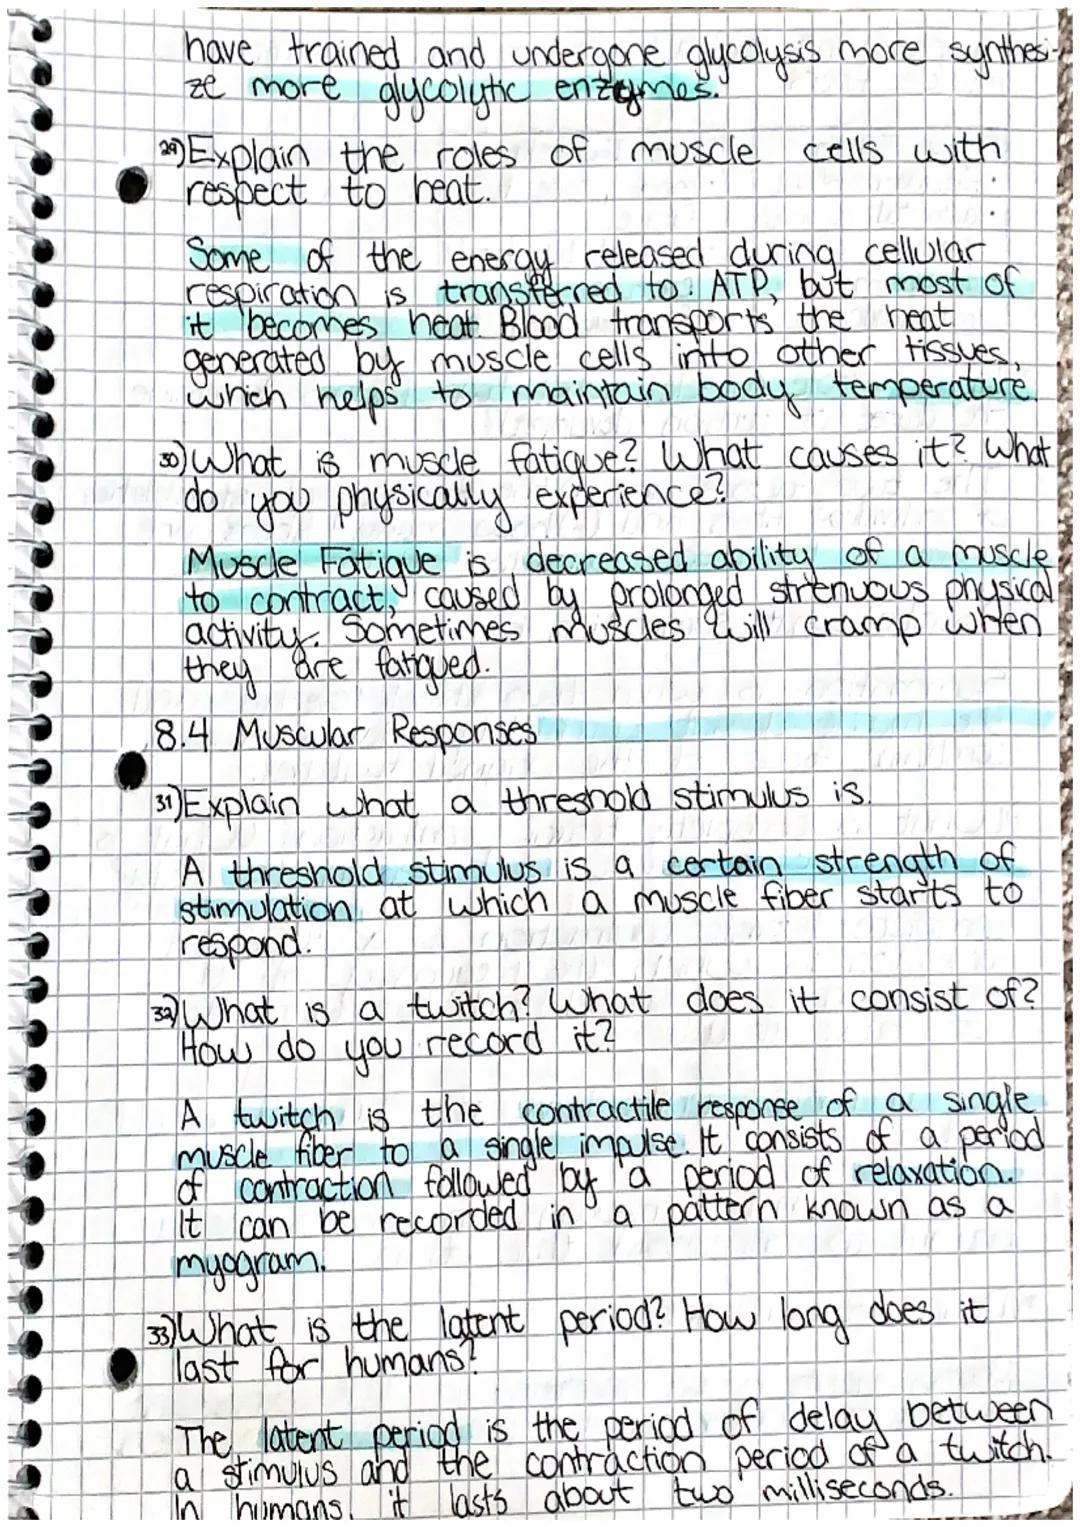 have trained and undergone glycolysis more synthesi-
ze more glycolytic enzymes.
29) Explain the roles of muscle cells with
respect to heat.
Some of the energy released during cellular
respiration is transferred to ATP, but most of
it becomes heat. Blood transports the heat
generated by muscle cells into other tissues,
which helps to maintain body temperature.
30) What is muscle fatigue? What causes it? What
do you physically experience?
Muscle Fatigue is decreased ability of a muscle
to contract, caused by prolonged strenuous physical
activity. Sometimes muscles will cramp when
they are fatigued.
8.4 Muscular Responses
31) Explain what a threshold stimulus is.
A threshold stimulus is a certain strength of
stimulation at which a muscle fiber starts to
respond.
32) What is a twitch? What does it consist of?
How do you record it?
A twitch is the contractile response of a single
muscle fiber to a single impulse. It consists of a period
of contraction followed by a period of relaxation.
It can be recorded in a pattern known as a
myogram.
33) What is the latent period? How long does it
last for humans?
The latent period is the period of delay between
a stimulus and the contraction period of a twitch.
In humans, it lasts about two milliseconds.